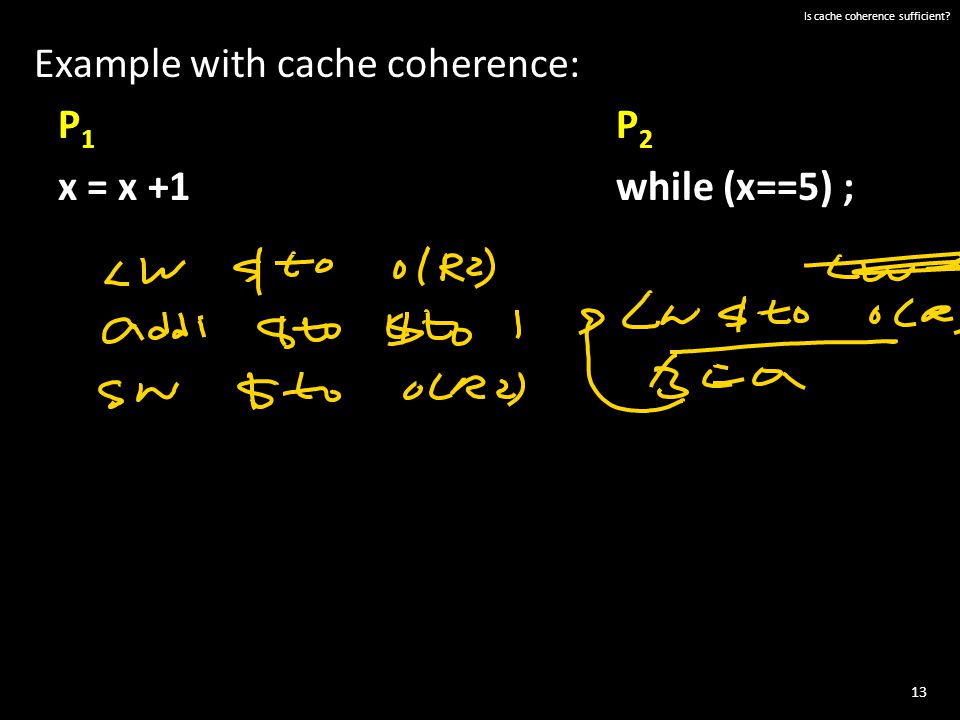 Is cache coherence sufficient?
Example with cache coherence:
P1 P2
x = x +1 while (x==5) ;
LW $to 0(R2)
addi $to $to 1
LW $to 0(R
SW $to 0(R2)
13